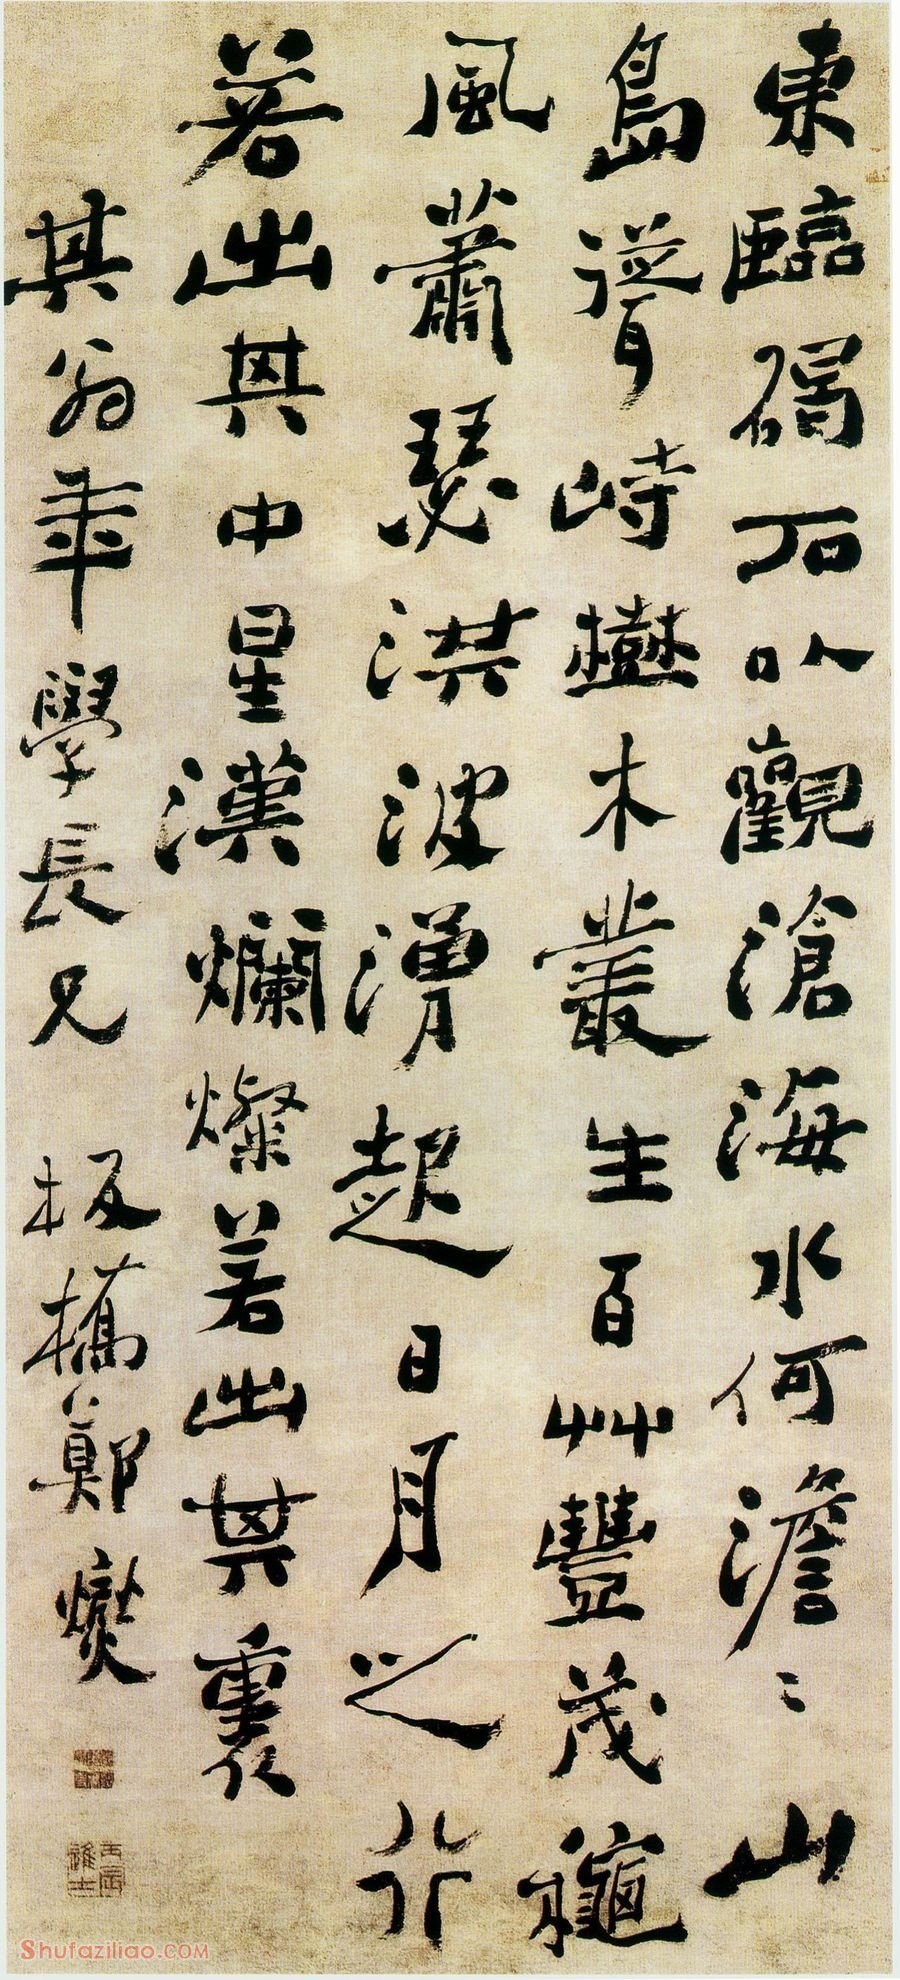 東臨碣石以觀滄海水何澹〻山
島聳峙樹木叢生百艸豐茂龝
風蕭瑟洪波湧起日月之行
若出其中星漢爛燦若出其裏
其翁年學長兄 板橋鄭燮
丙辰進士
Shufaziliao.COM